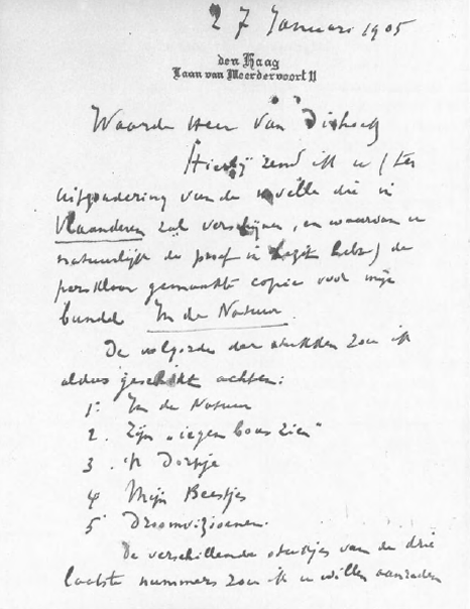 27 Januari 1905
den Haag
Laan van Meerdervoort 11
Waarde Heer van Dishoeck
Hierbij zend ik u (ter
uitzondering van de novelle die in
Vlaanderen zal verschijnen, en waarvan u
natuurlijk de proef in bezit hebt) de
persklaar gemaakte copie voor mijn
bundel In de Natuur.
De volgorde der stukken zou ik
aldus geschikt achten:
1. In de Natuur
2. Zijn
3. 't Dorpje
4 Mijn Beestjes
5 Droomvizioenen.
De verschillende stukjes van de drie
laatste nummers zou ik u willen aanraden